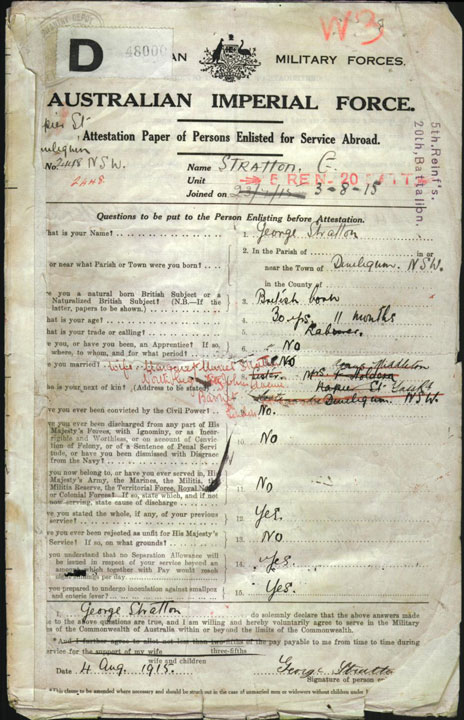 D
48000
W3
MILITARY FORCES.
AUSTRALIAN IMPERIAL FORCE.
Attestation Paper of Persons Enlisted for Service Abroad.
5th. Reinf's.
20th. Battalibn.
No. 2448 N.S.W.
2448
Name STRATTON. G
Unit 5 REN. 20
Joined on 3-8-15
Questions to be put to the Person Enlisting before Attestation.
hat is your Name?
1. George Stratton
or near what Parish or Town were you born?
2. In the Parish of in or
near the Town of Deniliquin. NSW.
in the County of
re you a natural born British Subject or a
Naturalized British Subject? (N.B.—If the
latter, papers to be shown.)
3. British born
hat is your age?
4. 30 yrs. 11 months
hat is your trade or calling?
5. Labourer
e you, or have you been, an Apprentice? If so,
where, to whom, and for what period?
6. No
e you married?
No
Wife. Margaret Stratton
ho is your next of kin? (Address to be stated)
George Middleton
Napier St
Deniliquin. NSW
ve you ever been convicted by the Civil Power?
No.
ve you ever been discharged from any part of His
Majesty's Forces, with Ignominy, or as Incor-
rigible and Worthless, or on account of Convic-
tion of Felony, or of a Sentence of Penal Servi-
tude, or have you been dismissed with Disgrace
from the Navy?
10. No
you now belong to, or have you ever served in, His
Majesty's Army, the Marines, the Militia, the
Militia Reserve, the Territorial Force, Royal Navy
or Colonial Forces? If so, state which, and if not
now serving, state cause of discharge
11. No
ve you stated the whole, if any, of your previous
service?
12. Yes.
ve you ever been rejected as unfit for His Majesty's
Service? If so, on what grounds?
13. No
you understand that no Separation Allowance will
be issued in respect of your service beyond an
amount which together with Pay would reach
shillings per day
14. Yes.
you prepared to undergo inoculation against smallpox
and enteric fever?
15. Yes.
I, George Stratton do solemnly declare that the above answers made
me to the above questions are true, and I am willing and hereby voluntarily agree to serve in the Military
es of the Commonwealth of Australia within or beyond the limits of the Commonwealth.
*And I further agree to allot not less than two-fifths of the pay payable to me from time to time during
three-fifths
service for the support of my wife
wife and children
Date 4 Aug. 1915.
George Stratton
Signature of person
*This clause to be amended where necessary and should be struck out in the case of unmarried men or widowers without children under